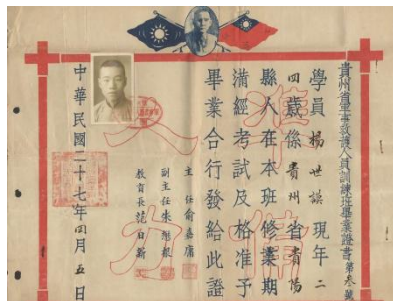 貴州省軍事救護人員訓練班畢業證書第叁號
學員楊世現年二
四歲係貴州省貴陽
縣人在本班修業期
滿經考試及格准予
畢業合行發給此證
主任俞嘉庸
副主任朱
教育長日新
中華民國二十七年四月五日